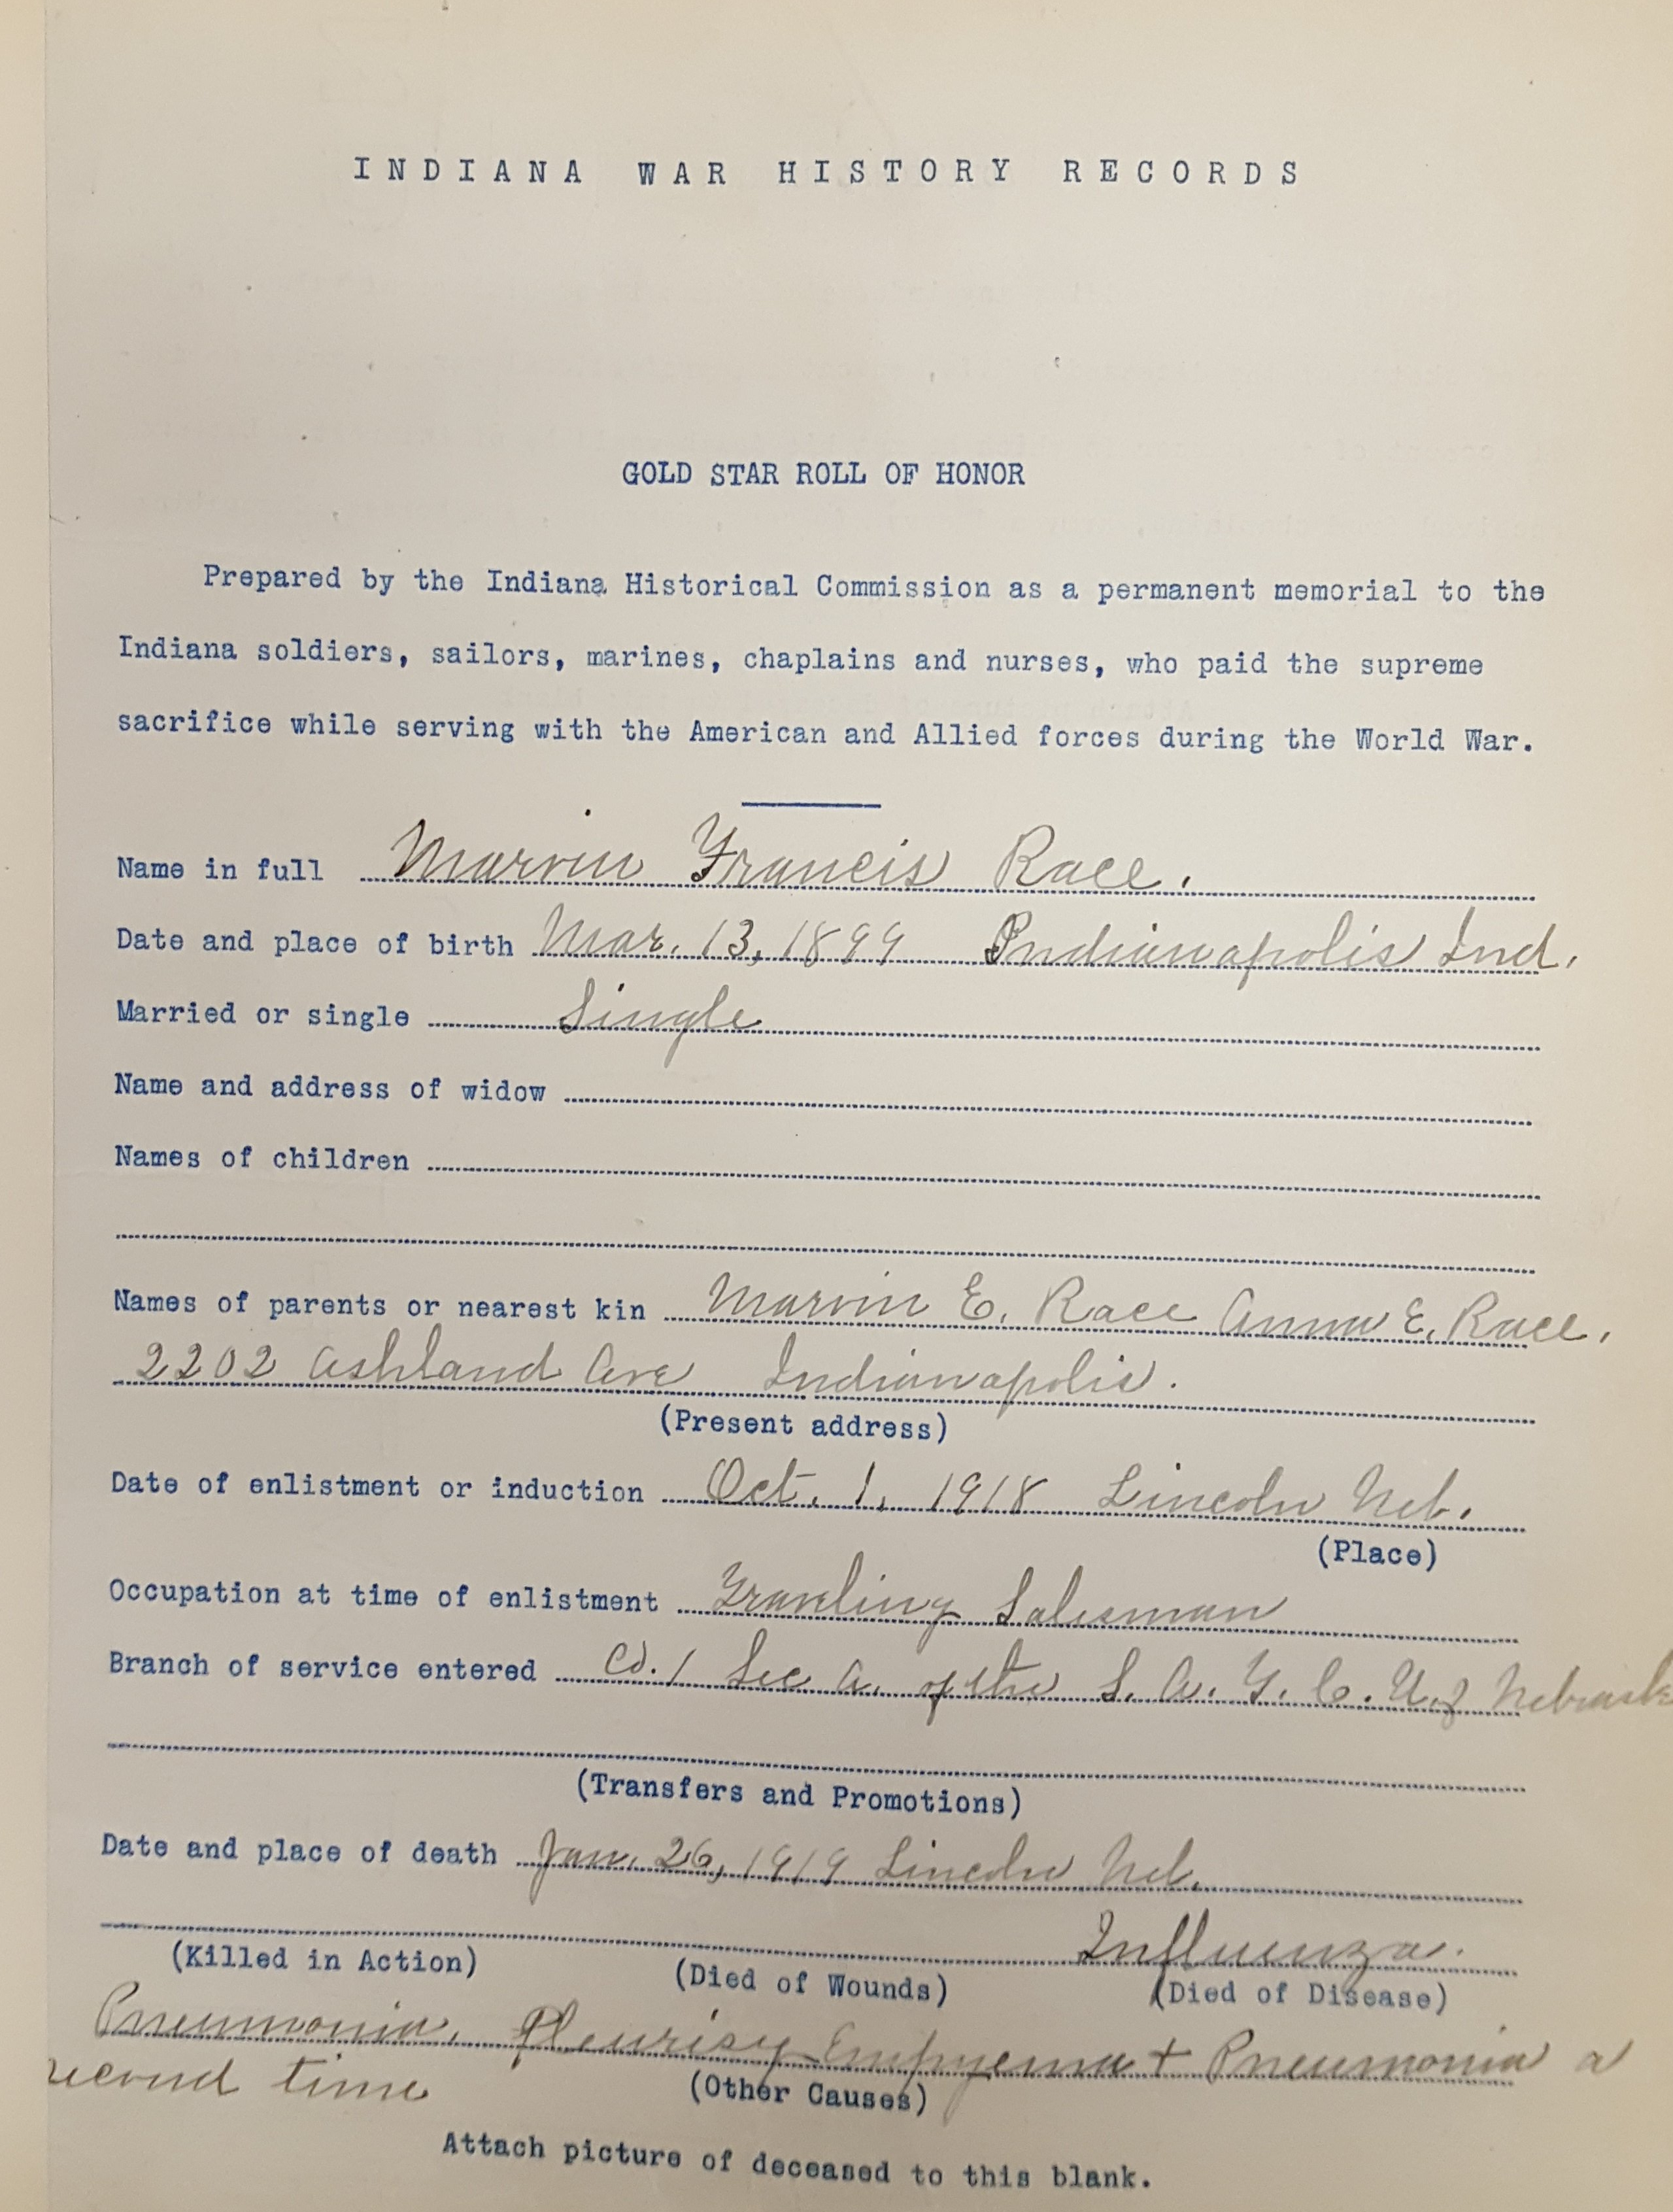 INDIANA WAR HISTORY RECORDS
GOLD STAR ROLL OF HONOR
Prepared by the Indiana Historical Commission as a permanent memorial to the
Indiana soldiers, sailors, marines, chaplains and nurses, who paid the supreme
sacrifice while serving with the American and Allied forces during the World War.
Name in full Marvin Francis Race.
Date and place of birth Mar. 13, 1899 Indianapolis Ind.
Married or single Single
Name and address of widow
Names of children
Names of parents or nearest kin Marvin E. Race Anna E. Race.
2202 Ashland Ave Indianapolis.
(Present address)
Date of enlistment or induction Oct. 1, 1918 Lincoln Neb.
(Place)
Occupation at time of enlistment Traveling Salesman
Branch of service entered Co. 1 Sec A. of the S. A. T. C. U. of Nebraska
(Transfers and Promotions)
Date and place of death Jan. 26, 1919 Lincoln Neb.
Influenza.
(Killed in Action) (Died of Wounds) (Died of Disease)
Pneumonia, Pleurisy Empyema + Pneumonia a
second time
(Other Causes)
Attach picture of deceased to this blank.